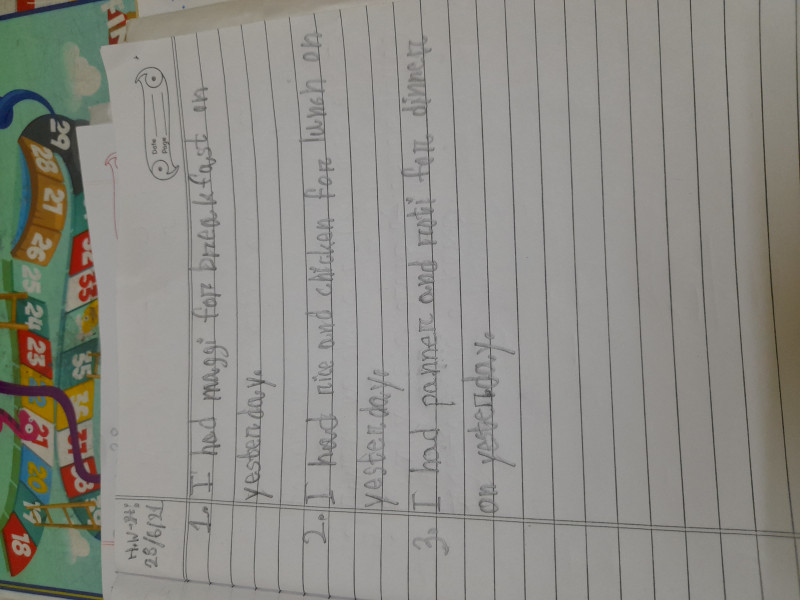 Date
Page
28/6/21
1. I had maggi for breakfast on
yesterday.
2. I had rice and chicken for lunch on
yesterday.
3. I had panner and roti for dinner
on yesterday.
29
28
27
26
25
24
23
21
20
19
18
32
33
35